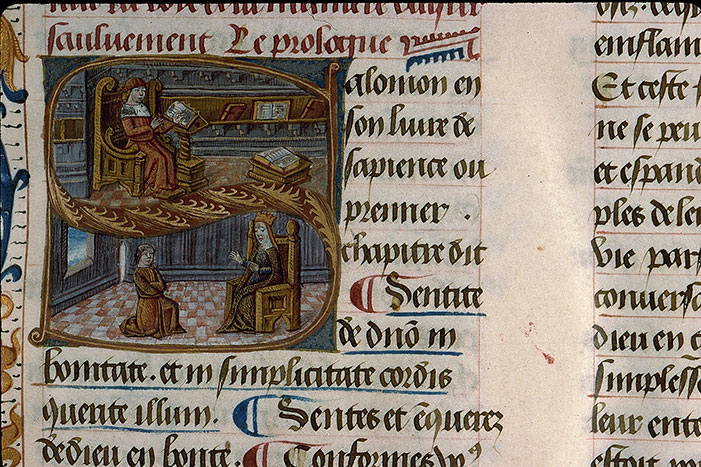 sauluement Le prologue
Salomon en
son liure de
sapience ou
premier .
chapitre dit
¶ Sentite
de dño in
bonitate . et in simplicitate cordis
querite illum . ¶ Sentes et enquerez
de dieu en bonte . ¶ Conformes
emflam
Et ceste
ne se peu
et espand
ples de leu
vie par
conuersa
dieu en
simplesse
leur ente
estoit